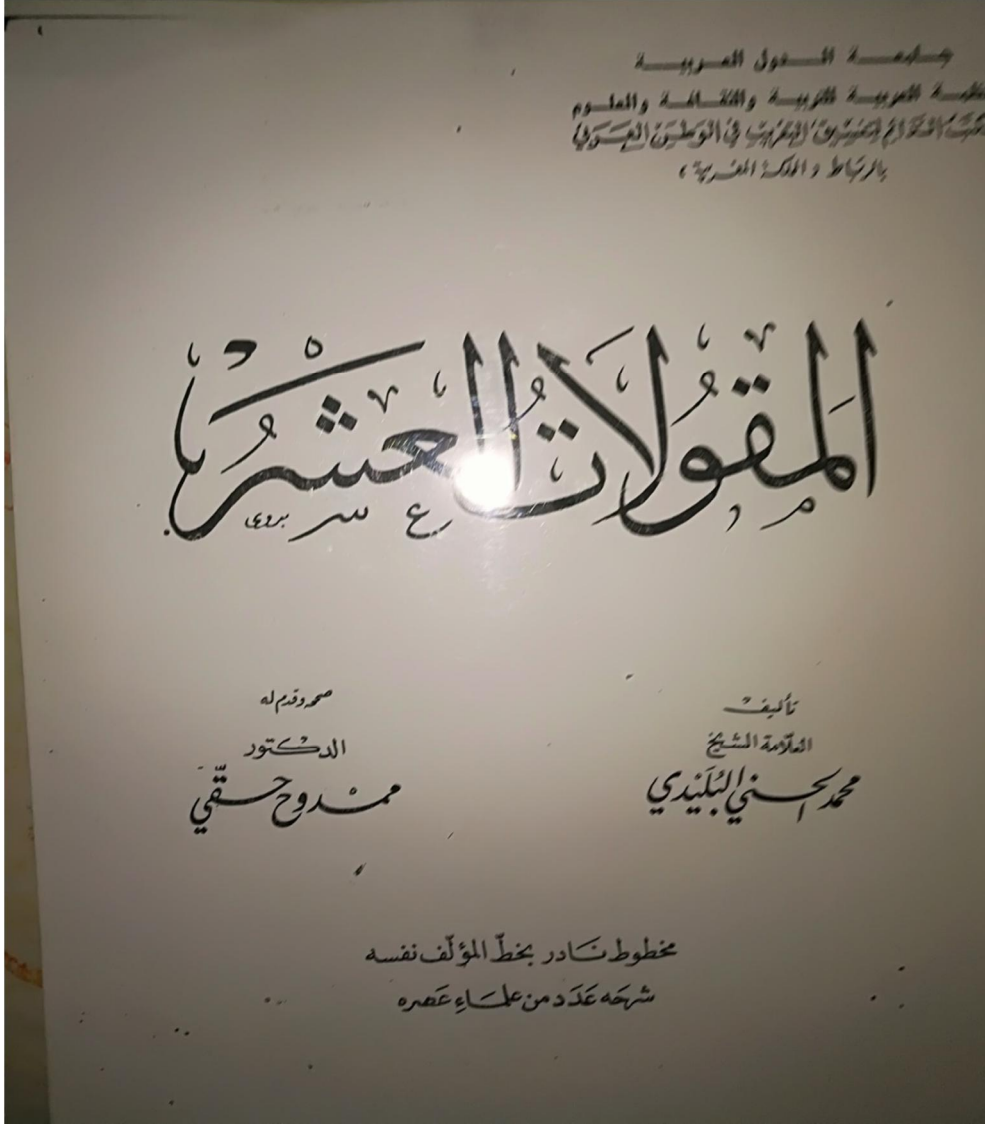 جامعة الدول العربية
العربية للتربية والثقافة والعلوم
في الوطن العربي
بالرباط « المملكة المغربية »
المقولات العشر
تأليف
العلامة الشيخ
محمد الحسني البليدي
صححه وقدم له
الدكتور
ممدوح حقي
مخطوط نادر بخط المؤلف نفسه
شرحه عدد من علماء عصره